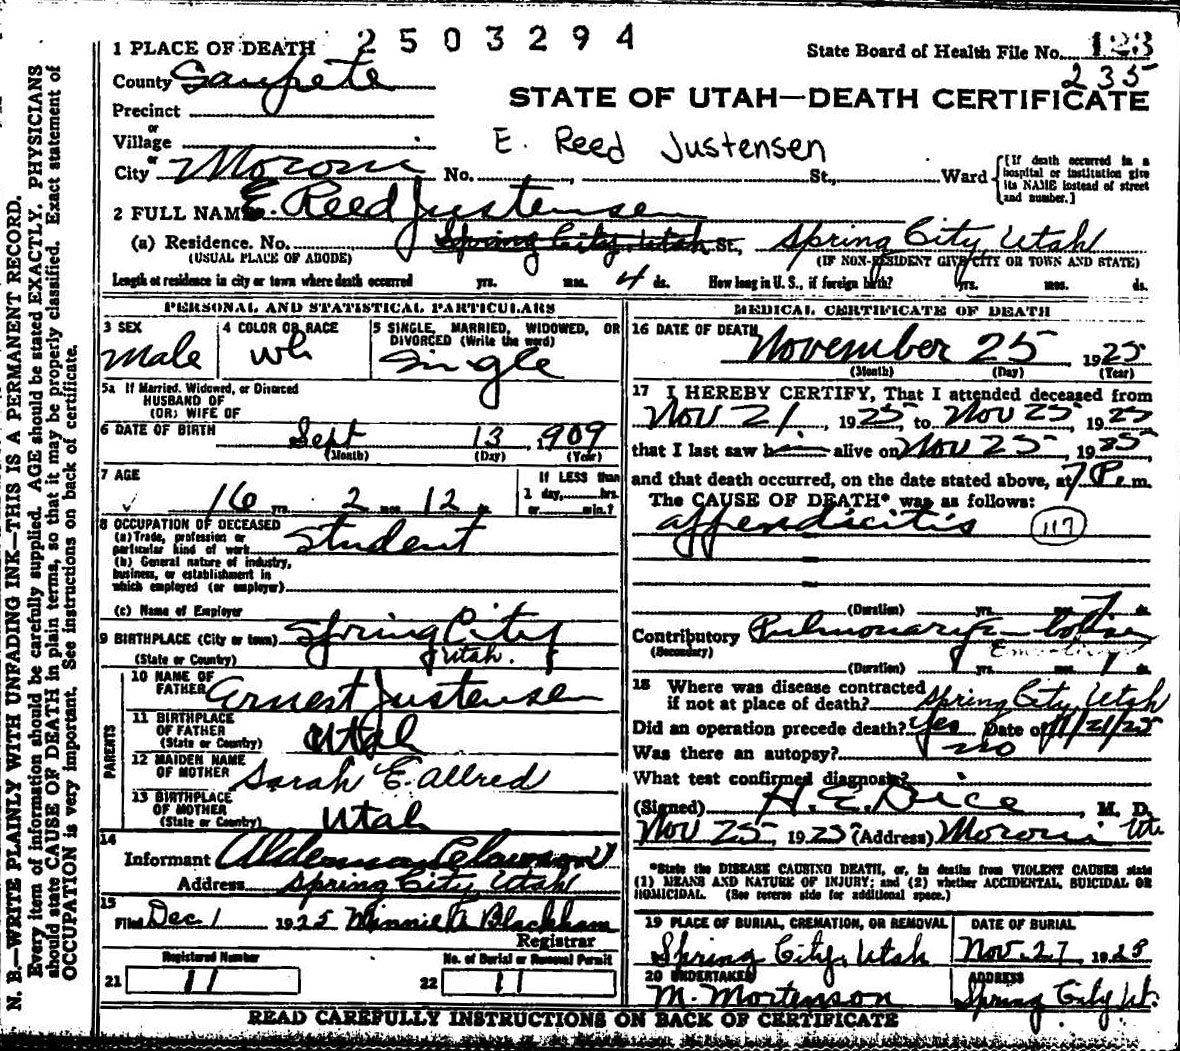 2503294
1 PLACE OF DEATH
State Board of Health File No. 123
235
County Sanpete
STATE OF UTAH—DEATH CERTIFICATE
Precinct
or
Village
E. Reed Justensen
or
City Moroni No. , St., Ward
[If death occurred in a hospital or institution give its NAME instead of street and number.]
2 FULL NAME E. Reed Justensen
(a) Residence. No. Spring City, Utah St., Spring City, Utah
(USUAL PLACE OF ABODE) (IF NON-RESIDENT GIVE CITY OR TOWN AND STATE)
Length of residence in city or town where death occurred yrs. mos. 4 ds. How long in U. S., if foreign birth? yrs. mos. ds.
PERSONAL AND STATISTICAL PARTICULARS
3 SEX
Male
4 COLOR OR RACE
Wh
5 SINGLE, MARRIED, WIDOWED, OR DIVORCED (Write the word)
Single
5a If Married, Widowed, or Divorced
HUSBAND OF
(OR) WIFE OF
6 DATE OF BIRTH Sept 13, 1909
(Month) (Day) (Year)
7 AGE
16 yrs. 2 mos. 12
If LESS than
1 day, hrs.
or min.?
8 OCCUPATION OF DECEASED
(a) Trade, profession or
particular kind of work Student
(b) General nature of industry,
business, or establishment in
which employed (or employer)
(c) Name of Employer
9 BIRTHPLACE (City or town) Spring City
(State or Country) Utah.
PARENTS
10 NAME OF
FATHER Ernest Justensen
11 BIRTHPLACE
OF FATHER
(State or Country) Utah
12 MAIDEN NAME
OF MOTHER Sarah E. Allred
13 BIRTHPLACE
OF MOTHER
(State or Country) Utah
14
Informant Alderman Clawson
Address Spring City, Utah
15
Filed Dec. 1 1925 Minnie A. Blackham
Registrar
Registered Number
21 11
No. of Burial or Removal Permit
22 11
MEDICAL CERTIFICATE OF DEATH
16 DATE OF DEATH
November 25, 1925
(Month) (Day) (Year)
17 I HEREBY CERTIFY, That I attended deceased from
Nov 21, 1925, to Nov 25, 1925
that I last saw h alive on Nov 25, 1925,
and that death occurred, on the date stated above, at 7 P. m.
The CAUSE OF DEATH* was as follows:
appendicitis 117
(Duration) yrs. 7 ds.
Contributory Pulmonary
(Secondary)
(Duration) yrs. mos. 1 ds.
18 Where was disease contracted
if not at place of death? Spring City, Utah
Did an operation precede death? Yes Date of 11/21/25
Was there an autopsy? no
What test confirmed diagnosis?
(Signed) H. E. Dice, M. D.
Nov 25, 1925 (Address) Moroni
*State the DISEASE CAUSING DEATH, or, in deaths from VIOLENT CAUSES state
(1) MEANS AND NATURE OF INJURY; and (2) whether ACCIDENTAL, SUICIDAL OR
HOMICIDAL. (See reverse side for additional space.)
19 PLACE OF BURIAL, CREMATION, OR REMOVAL
Spring City, Utah
DATE OF BURIAL
Nov. 27, 1925
20 UNDERTAKER
M. Mortenson
ADDRESS
Spring City Ut.
READ CAREFULLY INSTRUCTIONS ON BACK OF CERTIFICATE
N. B.—WRITE PLAINLY WITH UNFADING INK—THIS IS A PERMANENT RECORD.
Every item of information should be carefully supplied. AGE should be stated EXACTLY. PHYSICIANS
should state CAUSE OF DEATH in plain terms, so that it may be properly classified. Exact statement of
OCCUPATION is very important. See instructions on back of certificate.